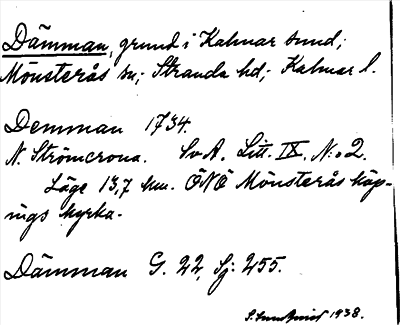 Dämman, grund i Kalmar sund;
Mönsterås sn; Stranda hd; Kalmar l.
Demman 1734.
N. Strömcrona. SvA. Litt. IX. N:o 2.
Läge 13,7 km. ÖNÖ Mönsterås köp-
ings kyrka.
Dämman G. 22, Sj: 255.
1938.